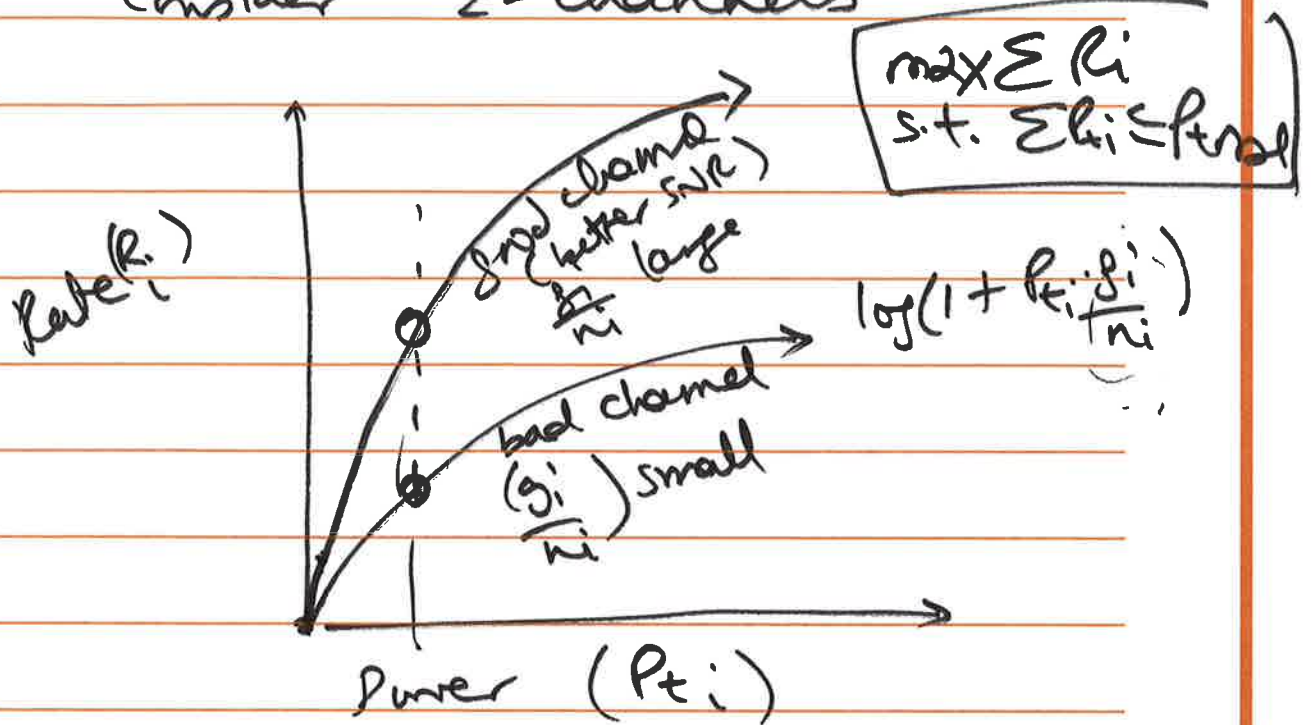 Consider 2-channels
max Σ Ri
s.t. Σ Pti ≤ Ptotal
Rate (Ri)
good channel
(better SNR)
gi/ni large
log(1 + Pti · gi/ni)
bad channel
(gi/ni) small
Power (Pti)